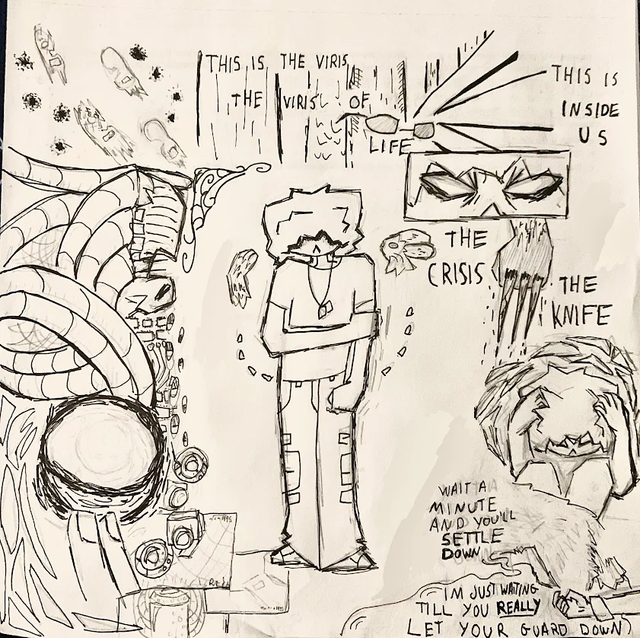 THIS IS THE VIRIS
THE VIRIS OF
LIFE
THIS IS
INSIDE
US
THE
CRISIS
THE
KNIFE
WAIT A
MINUTE
AND YOU'LL
SETTLE
DOWN
I'M JUST WAITING
TILL YOU REALLY
LET YOUR GUARD DOWN